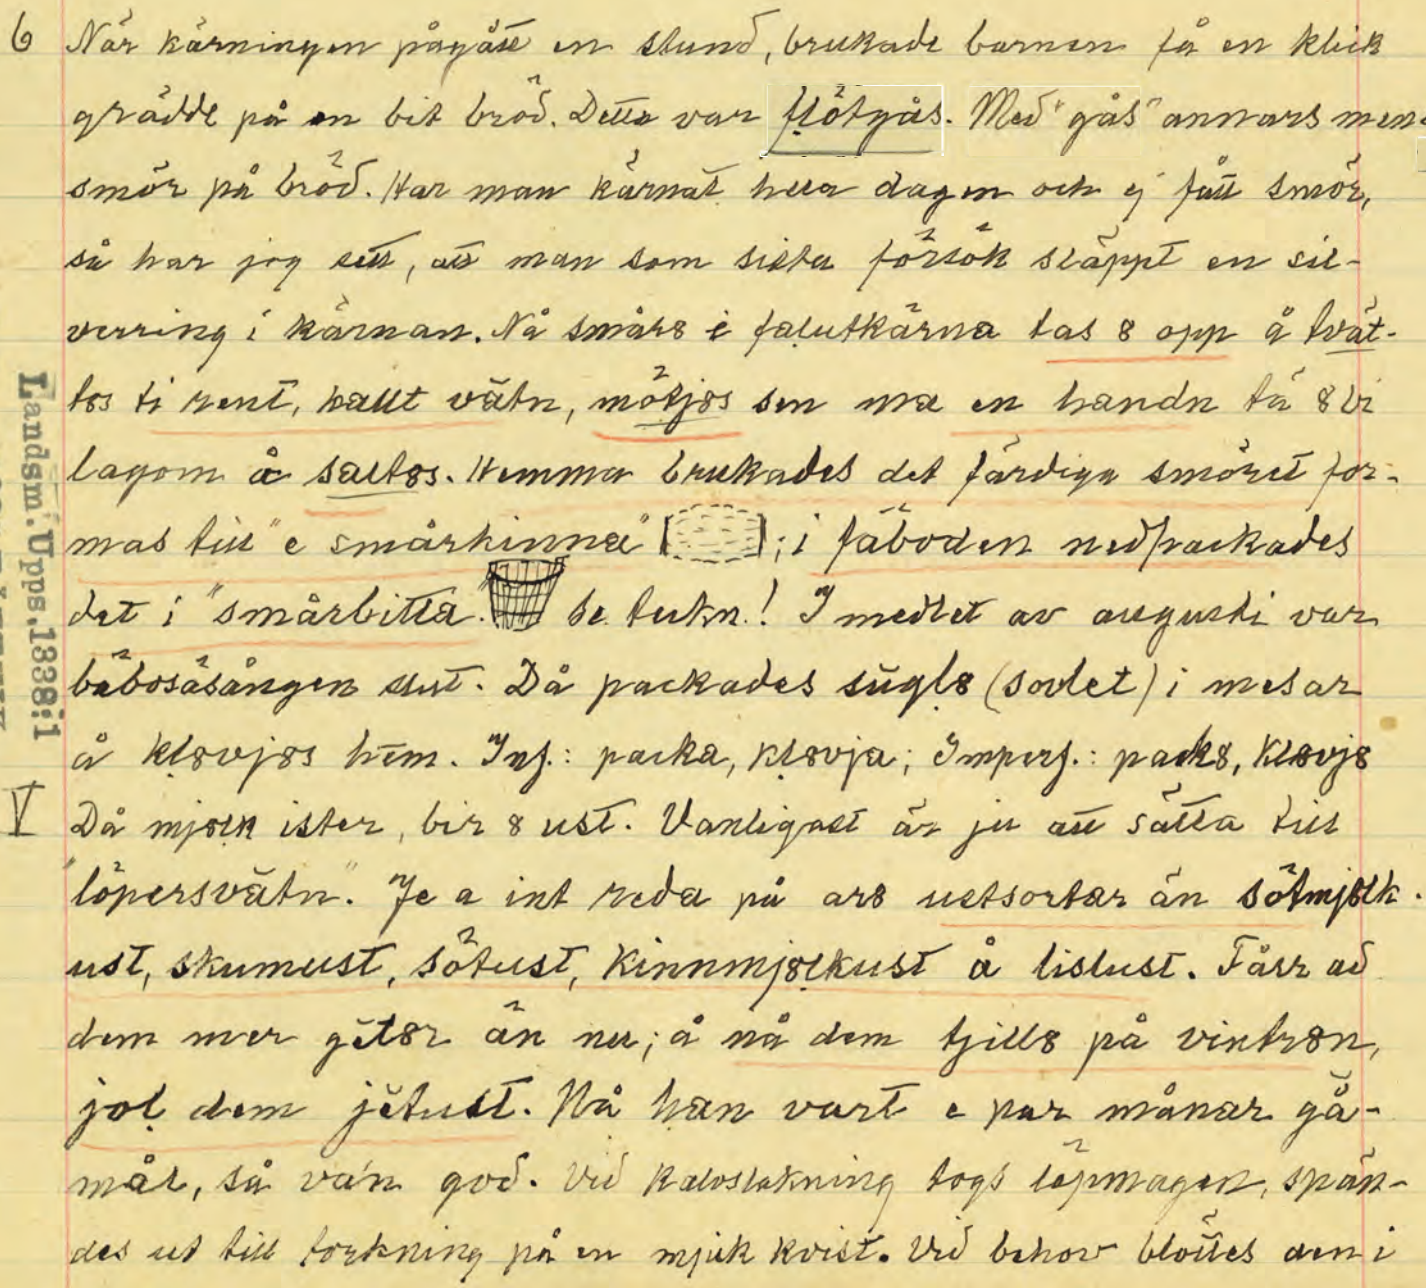 6 När kärningen pågått en stund, brukade barnen få en klick
grädde på en bit bröd. Detta var flötgås. Med "gås" annars men-
smör på bröd. Har man kärnat hela dagen och ej fått smör,
så har jag sett, att man som sista försök släppt en sil-
verring i kärnan. Nå smårs i falutkärna tas 8 opp å tvät-
tos ti rent, kallt vätn, mötjos sen ma en handn tä 8 bi
lagom å saltos. Hemma brukades det färdiga smöret for-
mas till "e smårkinna" [ ]; i fäboden nedpackades
det i "smårbitta". se teckn.! I medlet av augusti var
bäbosäsången slut. Då packades sugl8 (sovlet) i mesar
å kl8vj8s hem. Inf.: packa, kl8vja; Imperf.: pack8, kl8vj8
V Då mjölk ister, bir 8 ust. Vanligast är ju att sätta till
"löpersvätn". Je a int reda på ar8 ustsortar än sötmjölk-
ust, skumust, sötust, kinnmj8lkust å lislust. Fårr ad
dem mer get8r än nu; å nå dem tjill8 på vintr8n,
jol dem jetust. Nå han vart e par månar gå-
mål, så va'n god. Vid kalvslaktning togs löpmagen, spän-
des ut till torkning på en mjuk kvist. Vid behov blöttes den i
Landsm. Upps. 1338:1